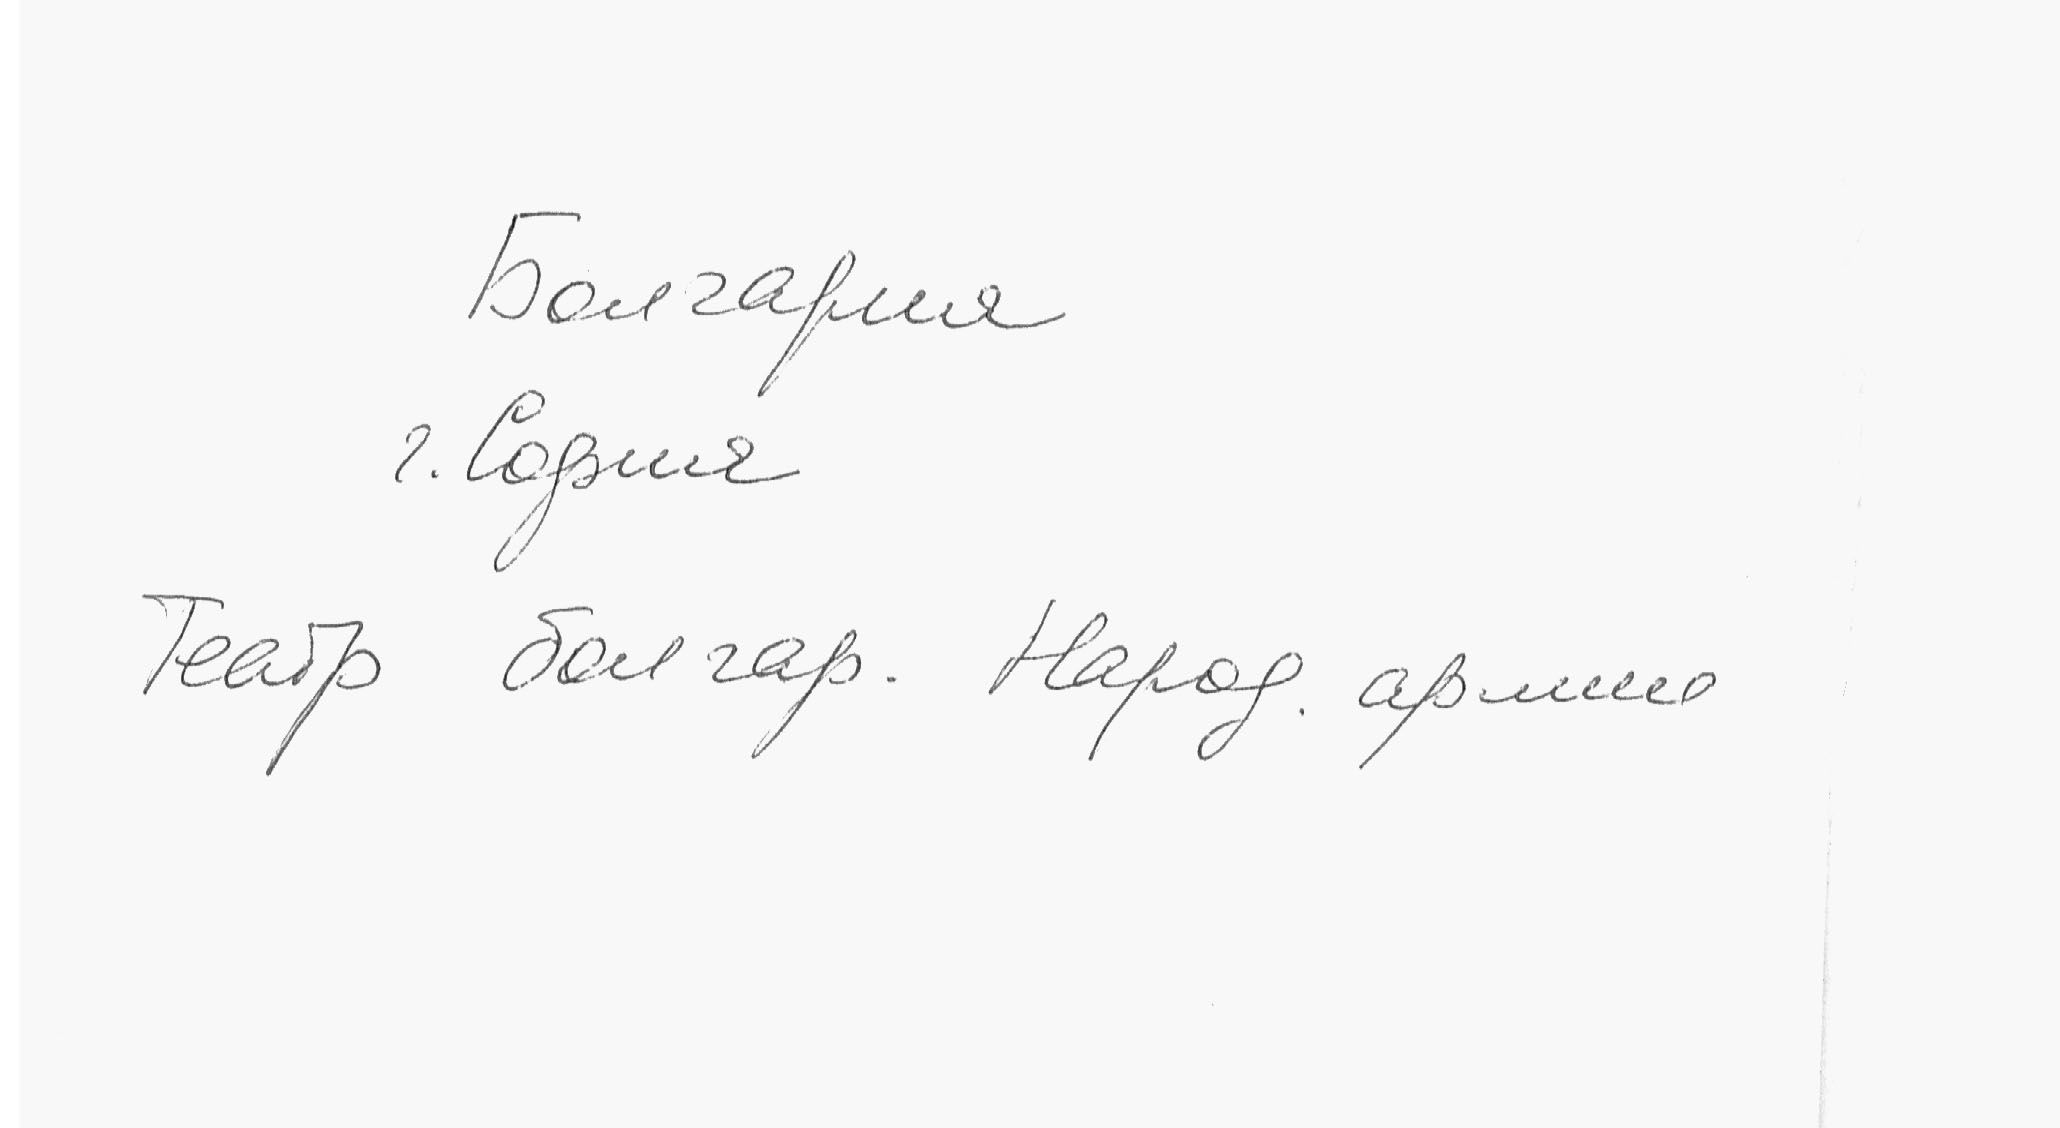 Болгария
г. София
Театр болгар. Народ. армии